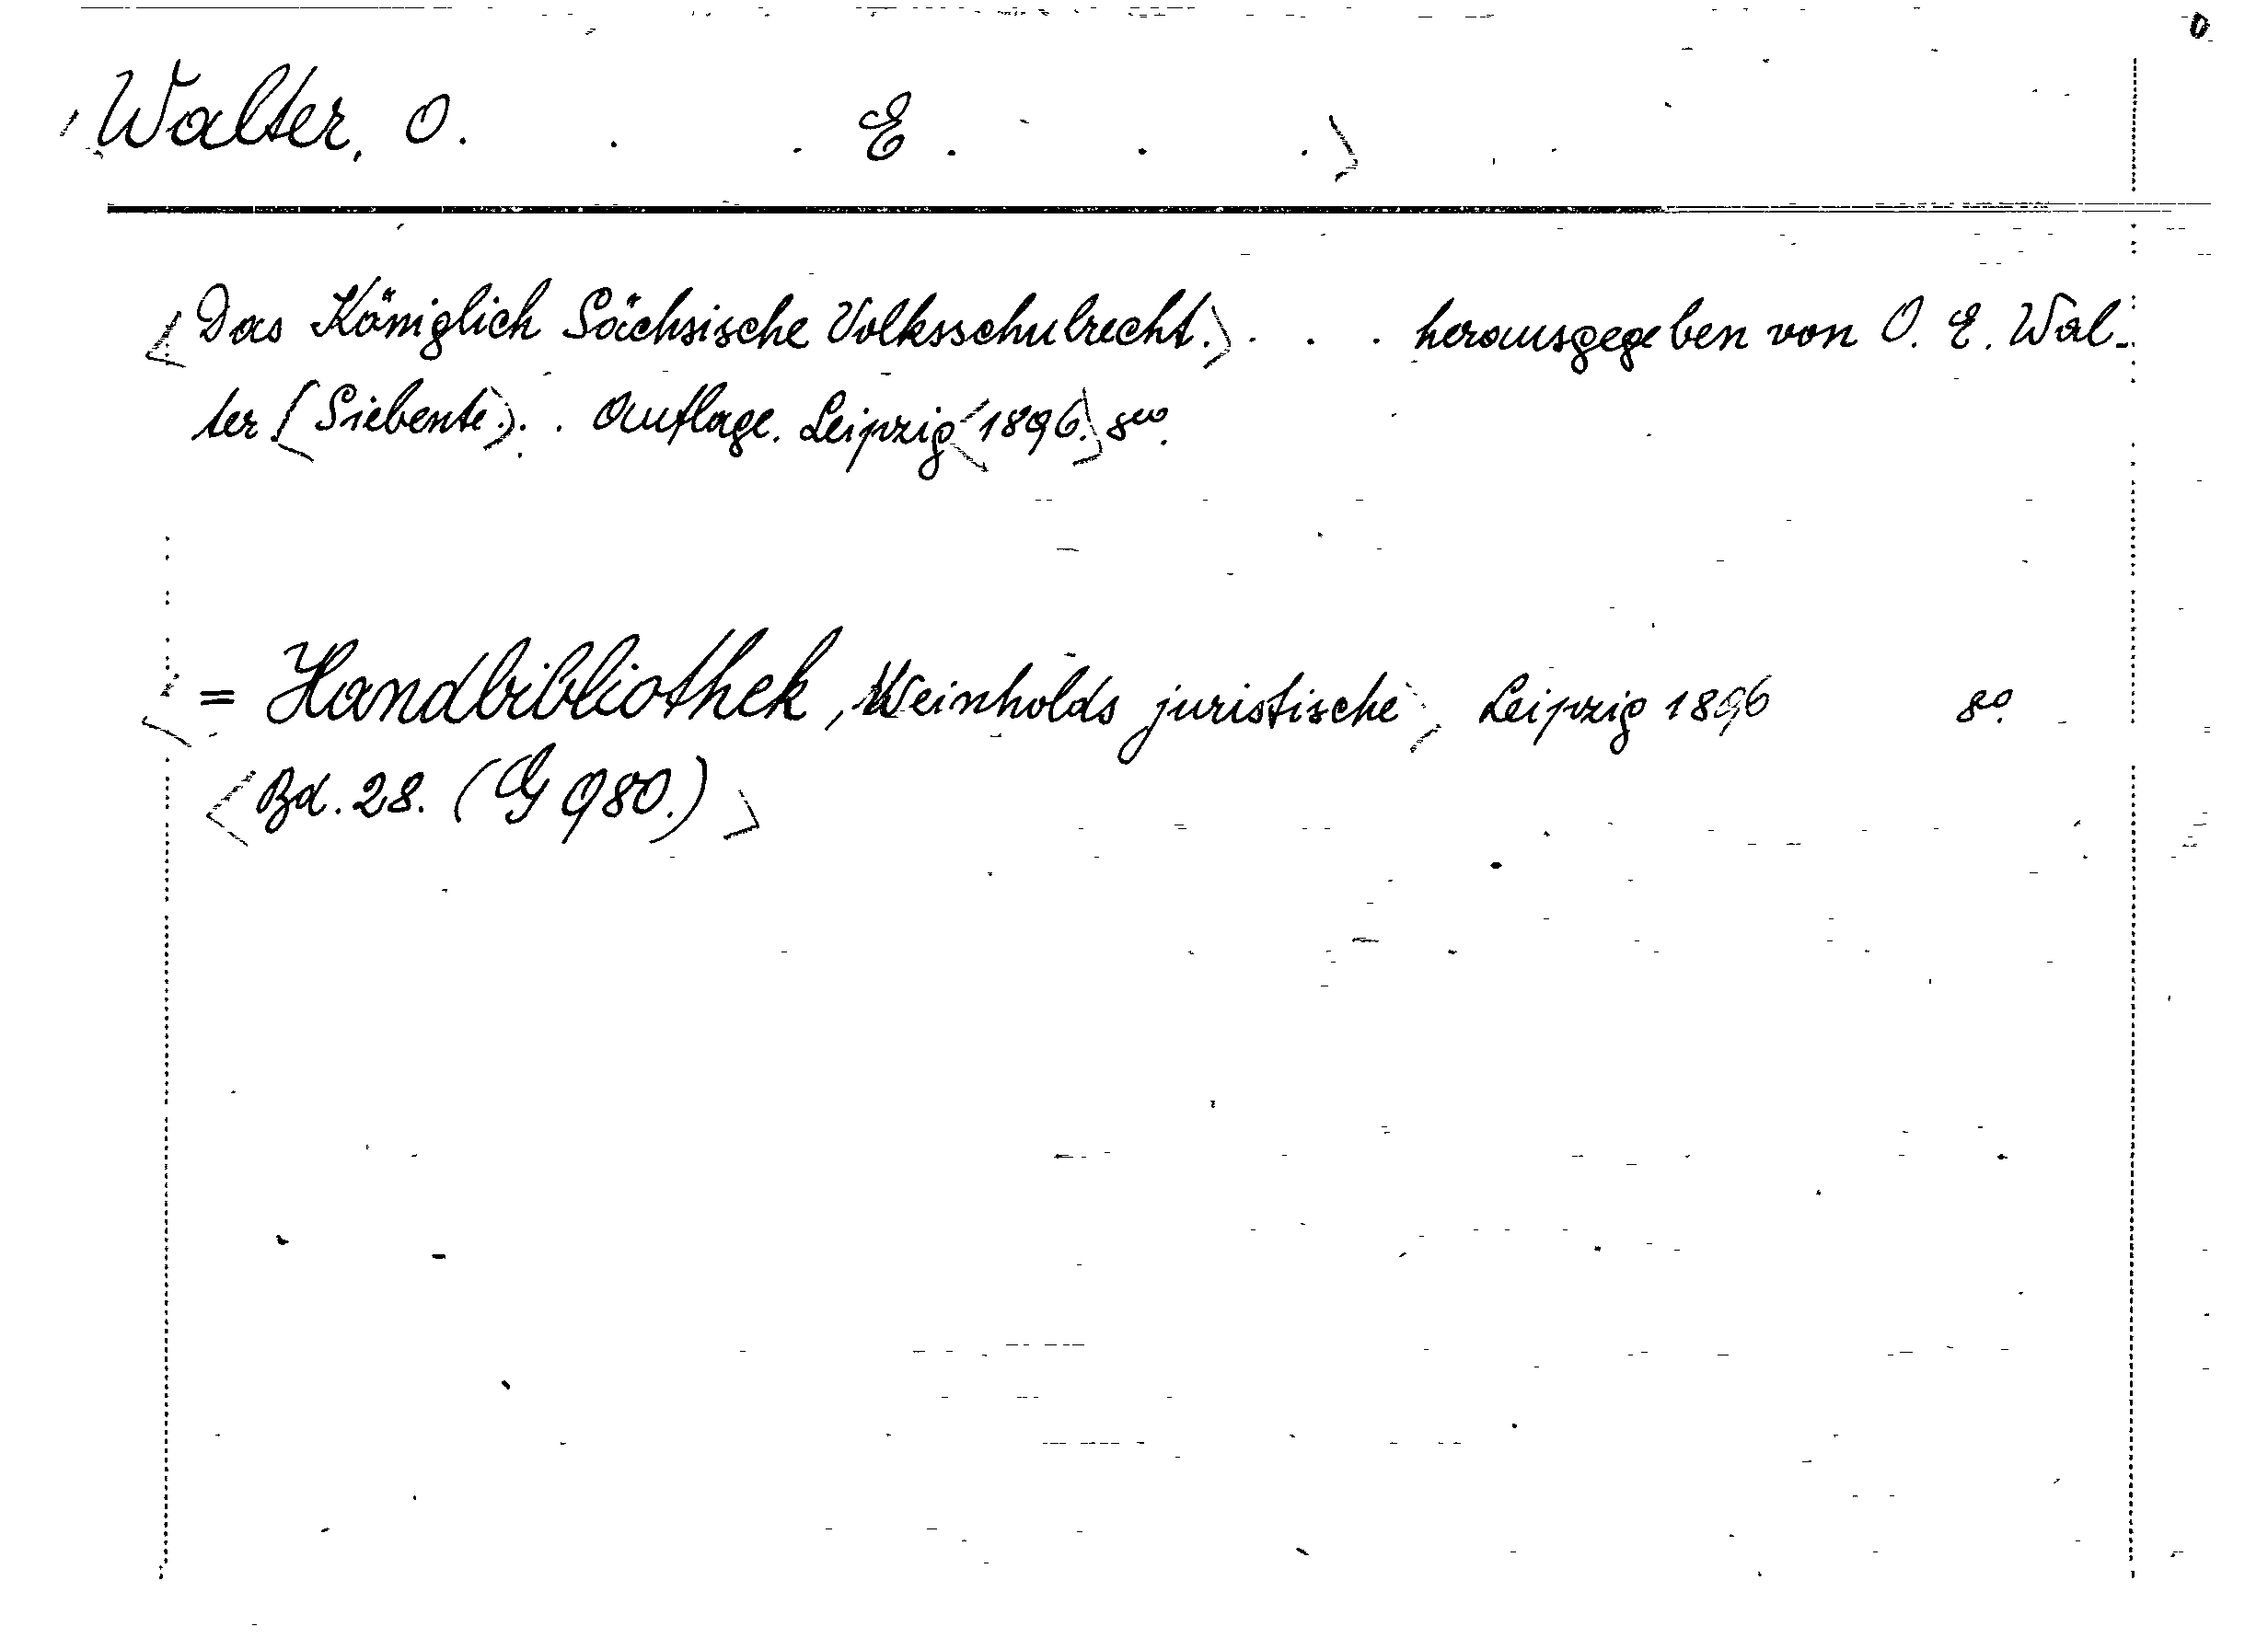 Walter, O. . . E . . .⟩
⟨Das Königlich Sächsische Volksschulrecht.⟩ . . . herausgegeben von O. E. Wal-
ter. ⟨Siebente⟩ . . Auflage. Leipzig ⟨1896.⟩ 8vo.
⟨= Handbibliothek, Weinholds juristische⟩ Leipzig 1896 8o.
⟨Bd. 28. (G 980.)⟩